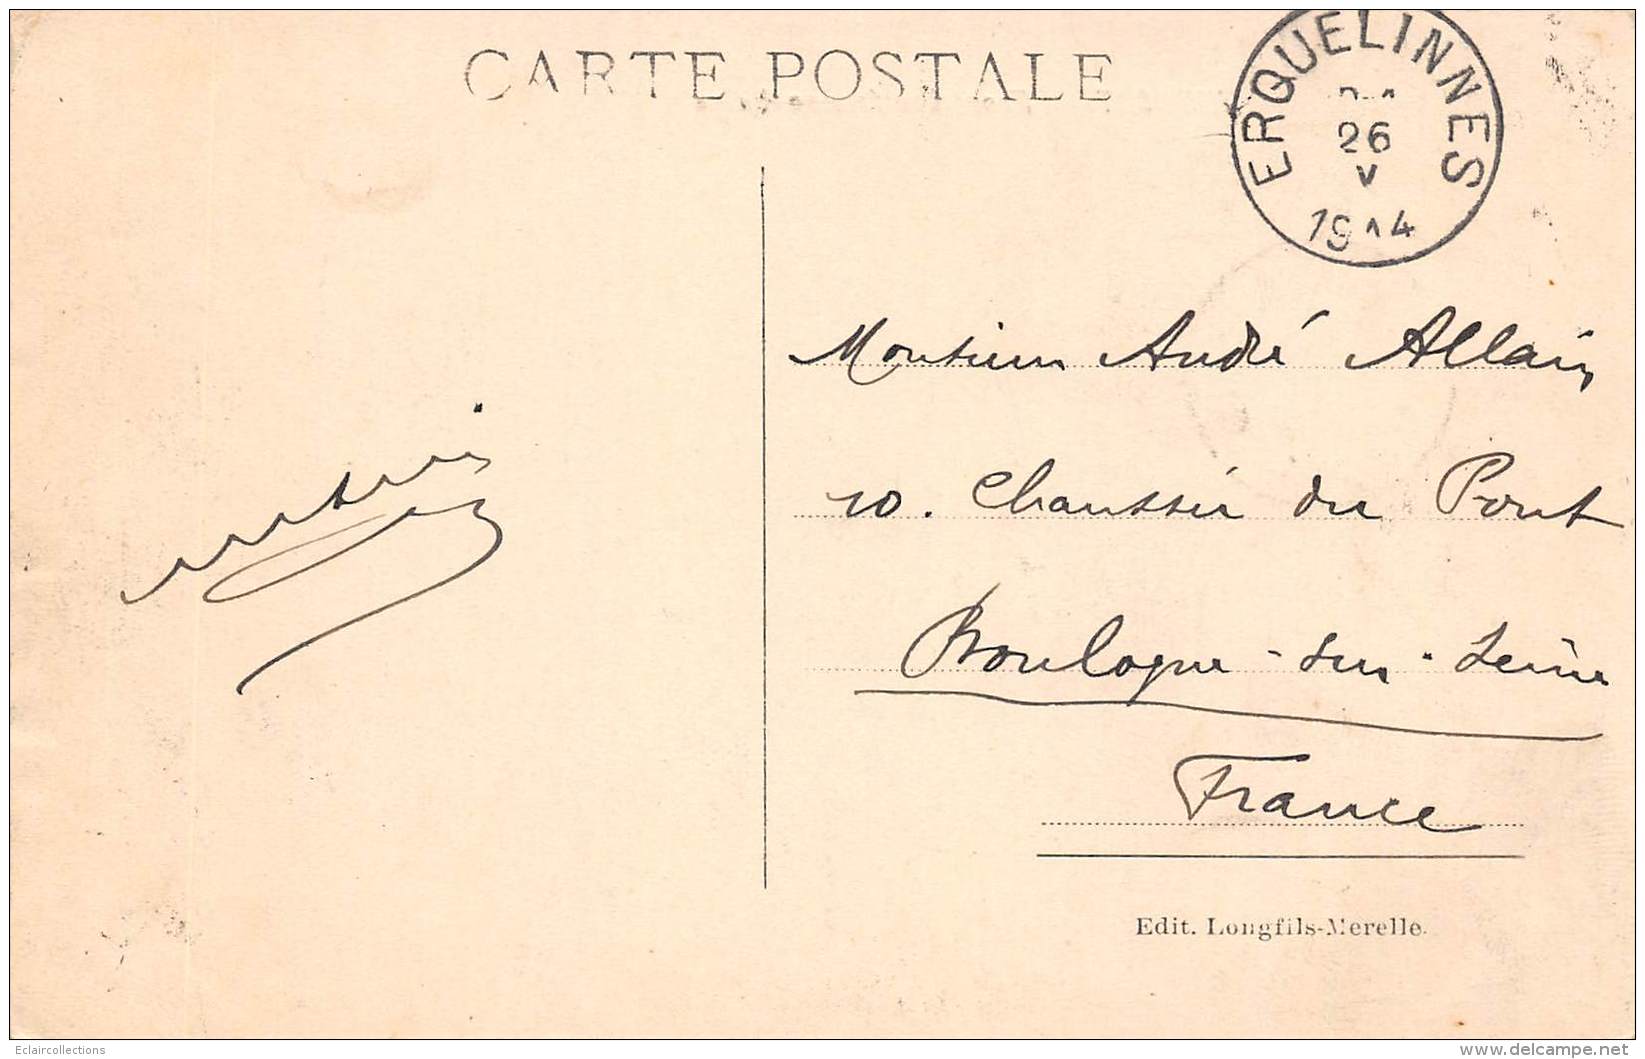 CARTE POSTALE
ERQUELINNES
26
V
1914
Monsieur André Allain
10. Chaussée du Pont
Boulogne-sur-Seine
France
Edit. Longfils-Merelle.
Eclaircollections
www.delcampe.net